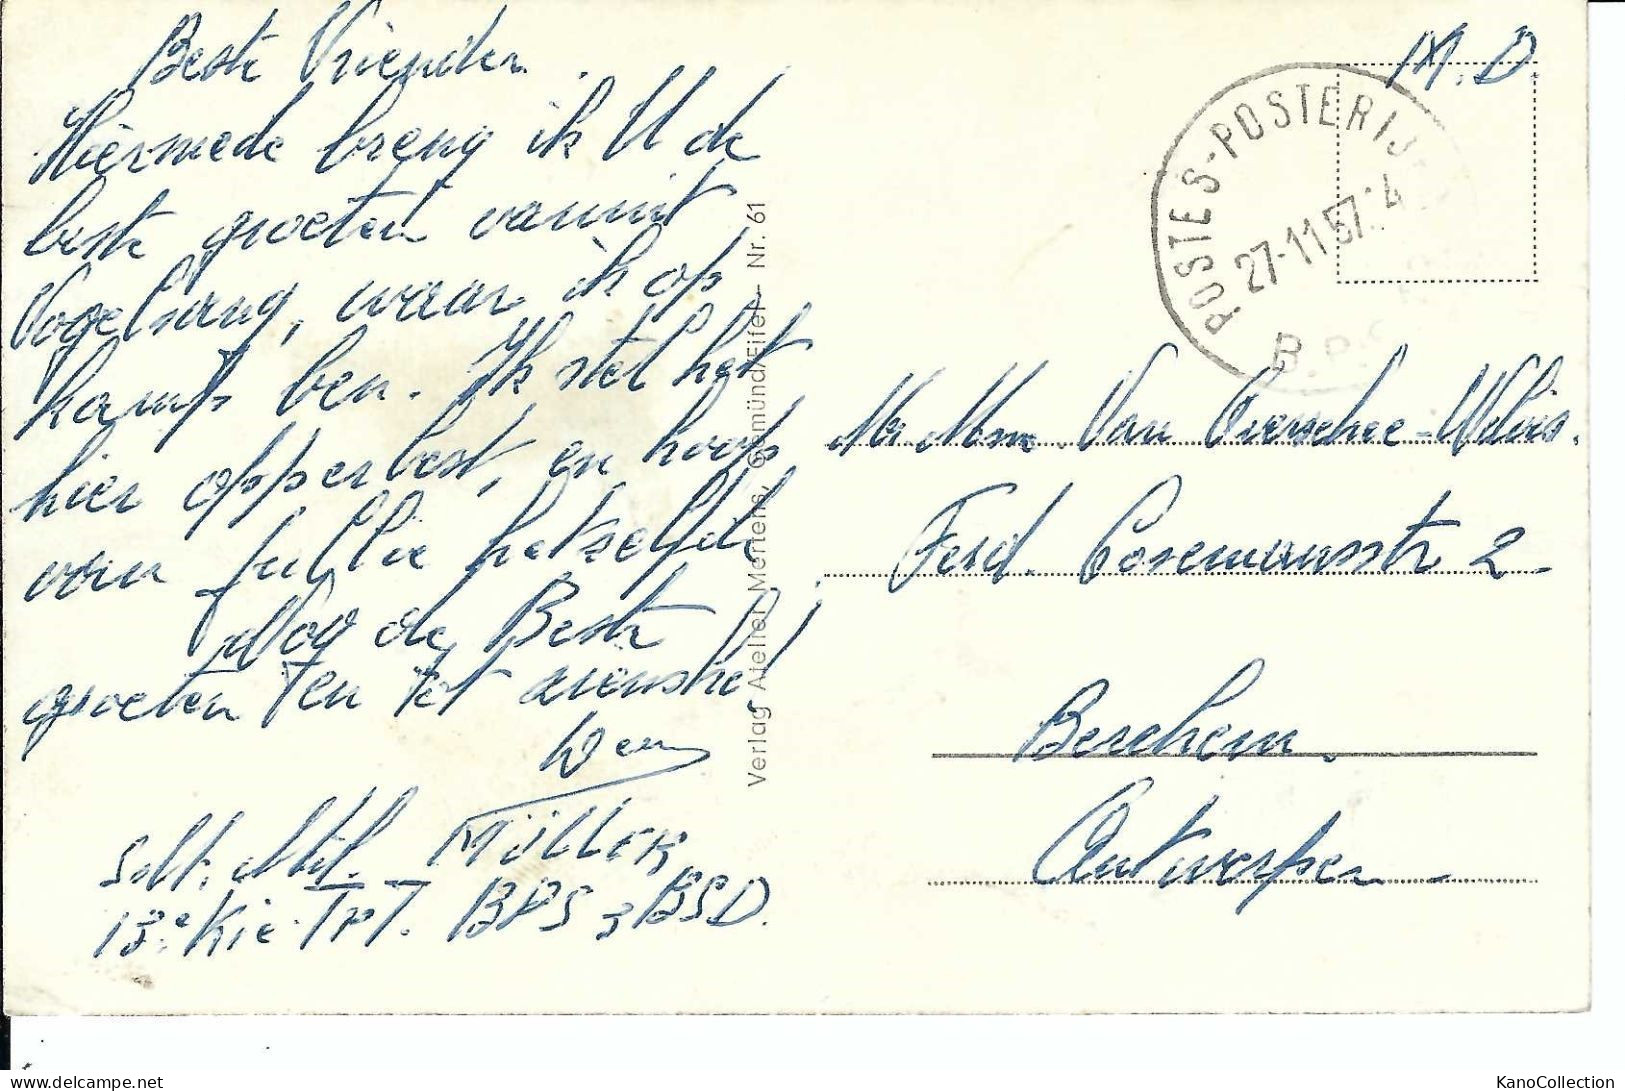 Beste Vrienden.
Hiermede breng ik U de
beste groeten vanuit
Vogelsang, waar ik op
kamp ben. Ik stel het
hier opperbest, en hoop
van jullie hetzelfde
Nog de Beste
groeten en tot ziens hé!
Müller
Sold. Mil.
13e Kie TPT. BPS 3 BSD.
Verlag Atelier Mertens, Gmünd/Eifel – Nr. 61
M.D.
POSTES-POSTERIJ
27-11 57
B.P.S
Mr Mme. Van Overschee-Wilois.
Ferd. Coosemansstr 2
Berchem.
Antwerpen
delcampe.net
KanoCollection